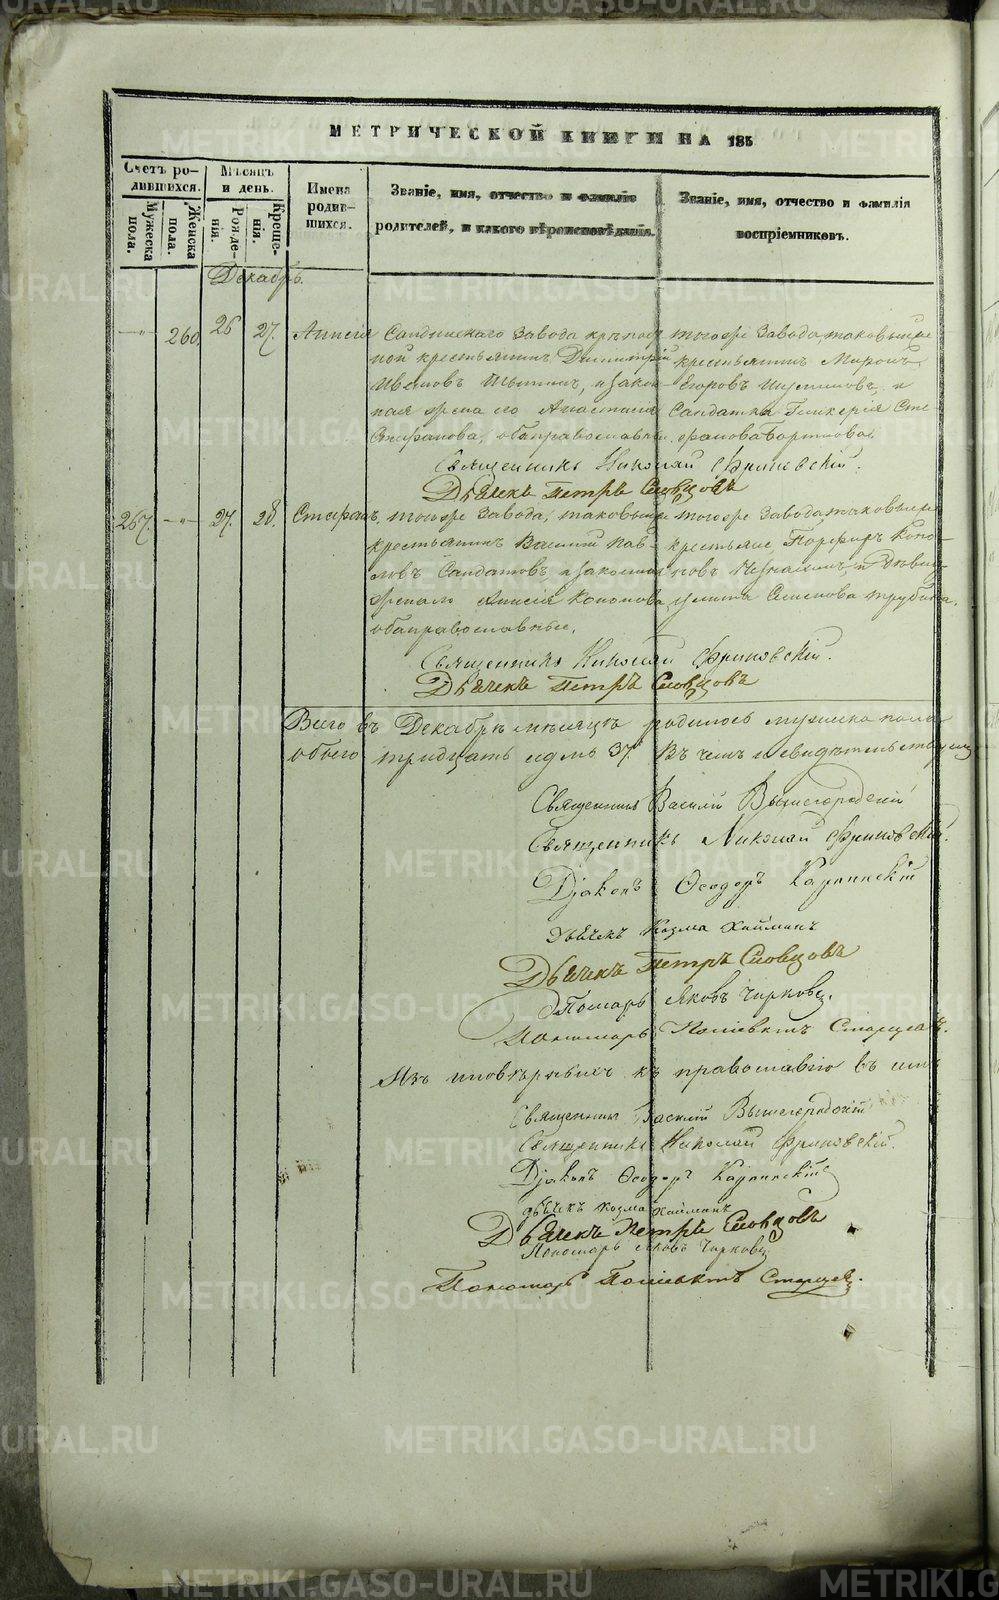 МЕТРИЧЕСКОЙ КНИГИ НА 185
Счетъ родившихся.
Мужеска пола.
Женска пола.
Мѣсяцъ и день.
Рожденія.
Крещенія.
Имена родившихся.
Званіе, имя, отчество и фамилія родителей, и какого вѣроисповѣданія.
Званіе, имя, отчество и фамилія воспріемниковъ.
Декабрь.
260. 26 27. Анисія
завода
крестьянинъ Димитрій
Ивановъ
жена его Анастасія
Стефанова, оба православные.
тогоже завода таковыйже
крестьянинъ Миронъ
Егоровъ и
Солдатка Гликерія Сте-
фанова
Священникъ Николай Фриновскій.
Дьячекъ Петръ Словцовъ
267. 27. 28. Стефанъ
тогоже завода, таковыйже
крестьянинъ Василій Пав-
ловъ Солдатовъ, и законная
жена его Анисія Кононова,
оба православные.
тогоже завода таковыеже
крестьяне, Порфиръ Коно-
новъ и
Семенова Трубина.
Священникъ Николай Фриновскій.
Дьячекъ Петръ Словцовъ
Всего въ Декабрѣ мѣсяцѣ родилось мужеска пола
обоего тридцать седмь 37. Въ чемъ и свидѣтельствуемъ
Священникъ Василій Вышегородскій
Священникъ Николай Фриновскій.
Діаконъ Ѳеодоръ Карпинскій
Дьячекъ Козма Хайминъ
Дьячекъ Петръ Словцовъ
Пономарь Яковъ Чирковъ.
Пономарь Старцевъ.
Изъ иновѣрныхъ къ православію въ семъ
Священникъ Василій Вышегородскій
Священникъ Николай Фриновскій.
Діаконъ Ѳеодоръ Карпинскій
Дьячекъ Козма Хайминъ
Дьячекъ Петръ Словцовъ
Пономарь Яковъ Чирковъ
Пономарь Старцевъ.
METRIKI.GASO-URAL.RU